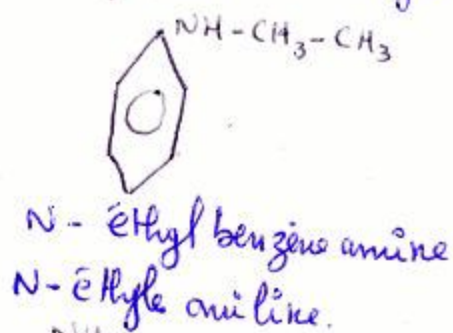 NH-CH₃-CH₃
N- éthyl benzène amine
N- éthyle aniline.